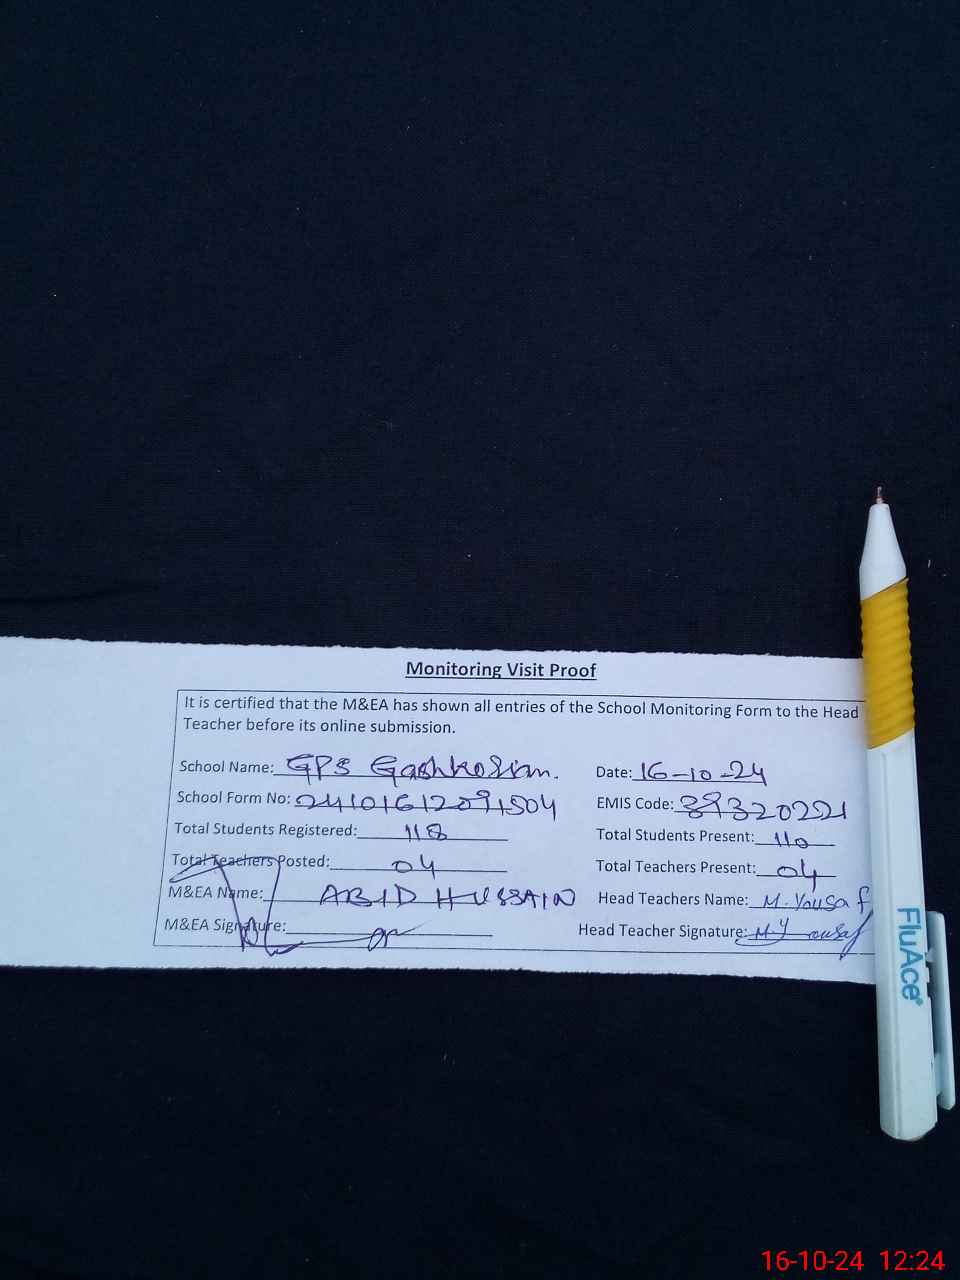 Monitoring Visit Proof
It is certified that the M&EA has shown all entries of the School Monitoring Form to the Head
Teacher before its online submission.
School Name: GPS Gashkorian. Date: 16-10-24
School Form No: 24101612091504 EMIS Code: 39320221
Total Students Registered: 118 Total Students Present: 110
Total Teachers Posted: 04 Total Teachers Present: 04
M&EA Name: ABID HUSSAIN Head Teachers Name: M. Yousaf
M&EA Signature: Head Teacher Signature: M. Yousaf
FluAce
16-10-24 12:24